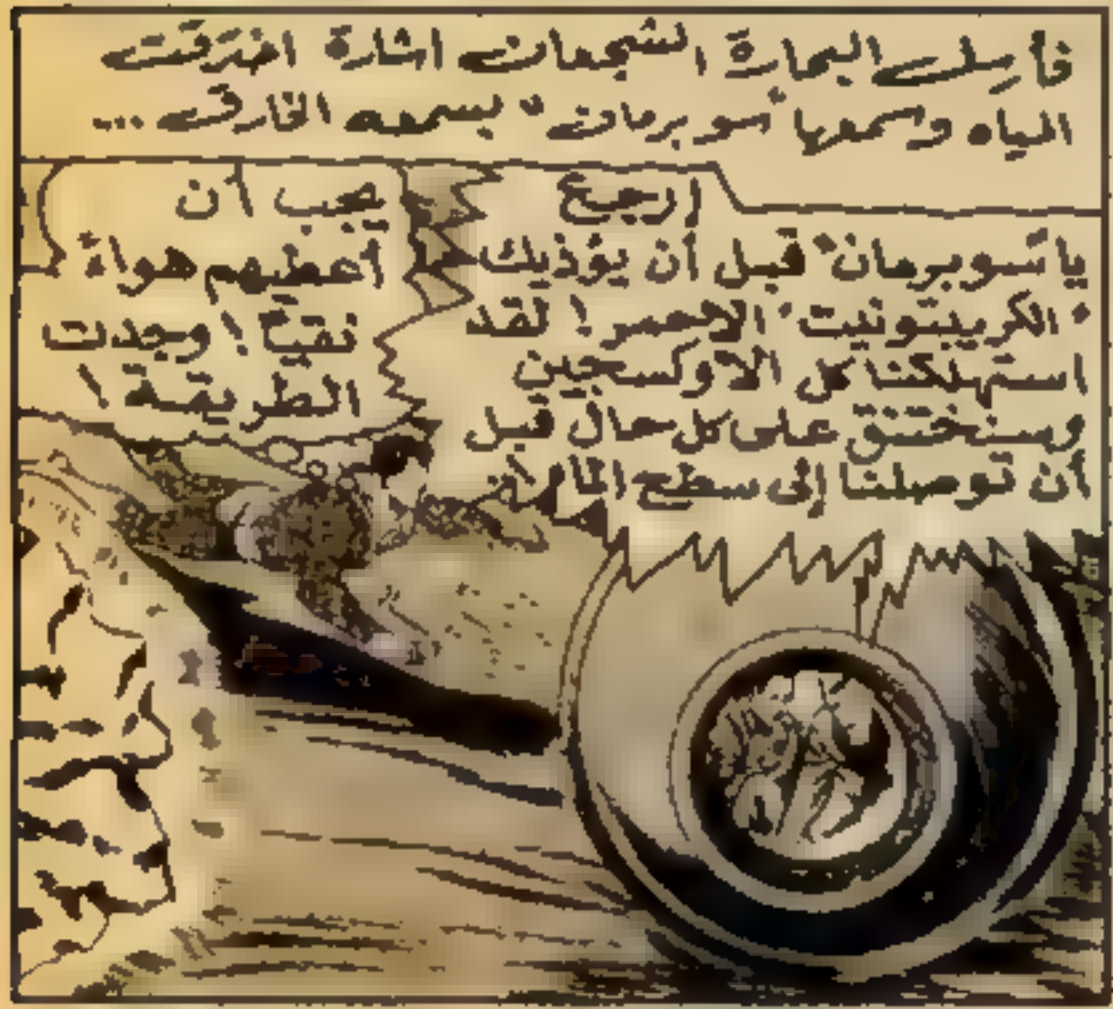 فأرسل البحارة الشجعان اشارة اخترقت
المياه وسمعها "سوبرمان" بسمعه الخارق ...
ارجع
يا"سوبرمان" قبل أن يؤذيك
"الكريبتونيت" الاحمر! لقد
استهلكنا كل الاوكسجين
وسنختنق على كل حال قبل
أن توصلنا إلى سطح الماء!
يجب أن
أعطيهم هواءً
نقياً! وجدت
الطريقة!